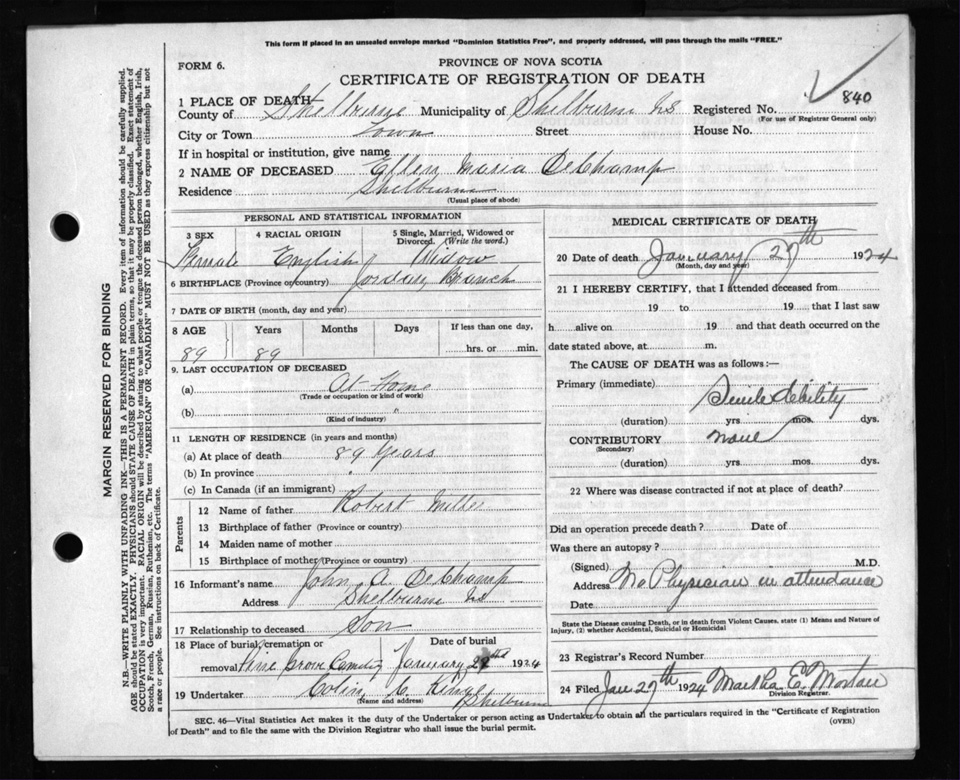 This form if placed in an unsealed envelope marked "Dominion Statistics Free", and properly addressed, will pass through the mails "FREE."
FORM 6.
PROVINCE OF NOVA SCOTIA
CERTIFICATE OF REGISTRATION OF DEATH
840
1 PLACE OF DEATH
County of Shelburne Municipality of Shelburne NS Registered No.
(For use of Registrar General only)
City or Town Town Street House No.
If in hospital or institution, give name
2 NAME OF DECEASED Ellen Maria DeChamp
Residence Shelburne
(Usual place of abode)
PERSONAL AND STATISTICAL INFORMATION
3 SEX 4 RACIAL ORIGIN 5 Single, Married, Widowed or Divorced. (Write the word.)
Female English Widow
6 BIRTHPLACE (Province or country) Jordan Branch
7 DATE OF BIRTH (month, day and year)
8 AGE Years Months Days If less than one day,
89 89 hrs. or min.
9. LAST OCCUPATION OF DECEASED
(a) At Home
(Trade or occupation or kind of work)
(b) "
(Kind of industry)
11 LENGTH OF RESIDENCE (in years and months)
(a) At place of death 89 Years
(b) In province
(c) In Canada (if an immigrant)
Parents
12 Name of father Robert
13 Birthplace of father (Province or country)
14 Maiden name of mother
15 Birthplace of mother (Province or country)
16 Informant's name John A. DeChamp
Address Shelburne NS
17 Relationship to deceased Son
18 Place of burial, cremation or Date of burial
removal Pine Grove Cemetery January 1924
19 Undertaker Colin C. Shelburne
(Name and address)
MEDICAL CERTIFICATE OF DEATH
20 Date of death January 27th 1924
(Month, day and year)
21 I HEREBY CERTIFY, that I attended deceased from
19 to 19 that I last saw
h alive on 19 and that death occurred on the
date stated above, at m.
The CAUSE OF DEATH was as follows:—
Primary (immediate) Senile debility
(duration) yrs. mos. dys.
CONTRIBUTORY none
(Secondary)
(duration) yrs. mos. dys.
22 Where was disease contracted if not at place of death?
Did an operation precede death? Date of
Was there an autopsy?
(Signed) M.D.
Address No Physician in attendance
Date
State the Disease causing Death, or in death from Violent Causes, state (1) Means and Nature of
Injury, (2) whether Accidental, Suicidal or Homicidal
23 Registrar's Record Number
24 Filed Jan 27th 1924 Martha E.
Division Registrar.
SEC. 46—Vital Statistics Act makes it the duty of the Undertaker or person acting as Undertaker to obtain all the particulars required in the "Certificate of Registration
of Death" and to file the same with the Division Registrar who shall issue the burial permit.
(OVER)
MARGIN RESERVED FOR BINDING
N.B.—WRITE PLAINLY WITH UNFADING INK—THIS IS A PERMANENT RECORD. Every item of information should be carefully supplied.
AGE should be stated EXACTLY. PHYSICIANS should STATE CAUSE OF DEATH in plain terms, so that it may be properly classified. Exact statement of
OCCUPATION is very important. RACIAL ORIGIN will be described by stating to what people or tongue the deceased person belonged, whether English, Irish,
Scotch, French, German, Russian, Ruthenian, etc. The terms "AMERICAN" OR "CANADIAN" MUST NOT BE USED as they express citizenship but not
a race or people. See instructions on back of Certificate.